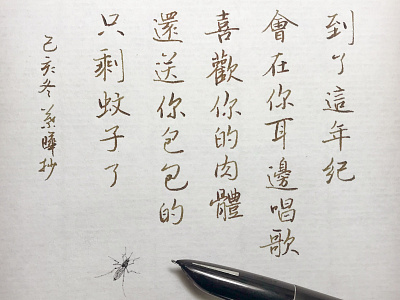 到了這年紀
會在你耳邊唱歌
喜歡你的肉體
還送你包包的
只剩蚊子了
己亥冬 業曄抄